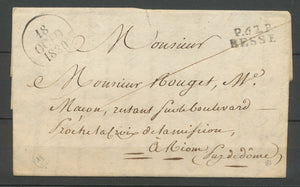 18
OCT
1830
P.62.P.
BESSE
Monsieur
Monsieur Rouget, M.e
Maçon, restant sur le boulevard
proche la Croix de la mission,
à Riom (Puy de dôme)